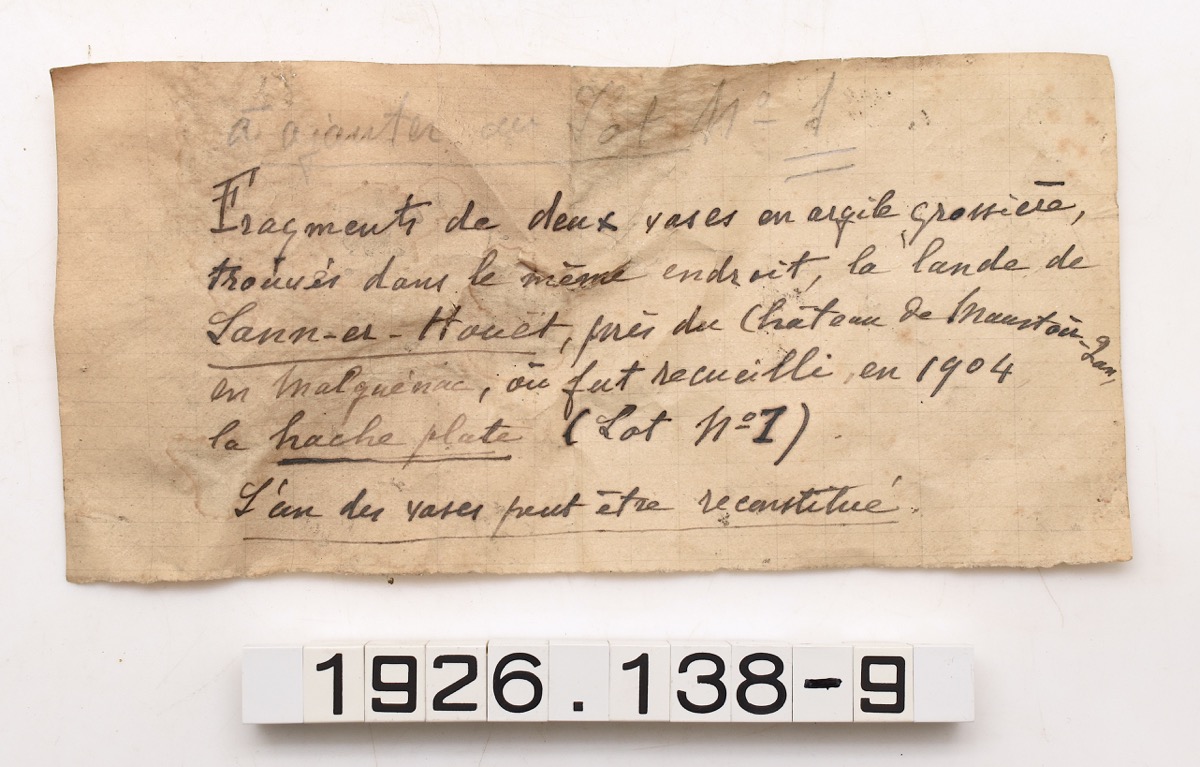 à ajouter au Lot Nº 1
Fragments de deux vases en argile grossière,
trouvés dans le même endroit, la lande de
Lann-er-Houët, près du Château de Maustoir-Lan,
en Malguénac, où fut recueilli en 1904
la hache plate (Lot Nº 1)
L'un des vases peut être reconstitué.
1926.138-9